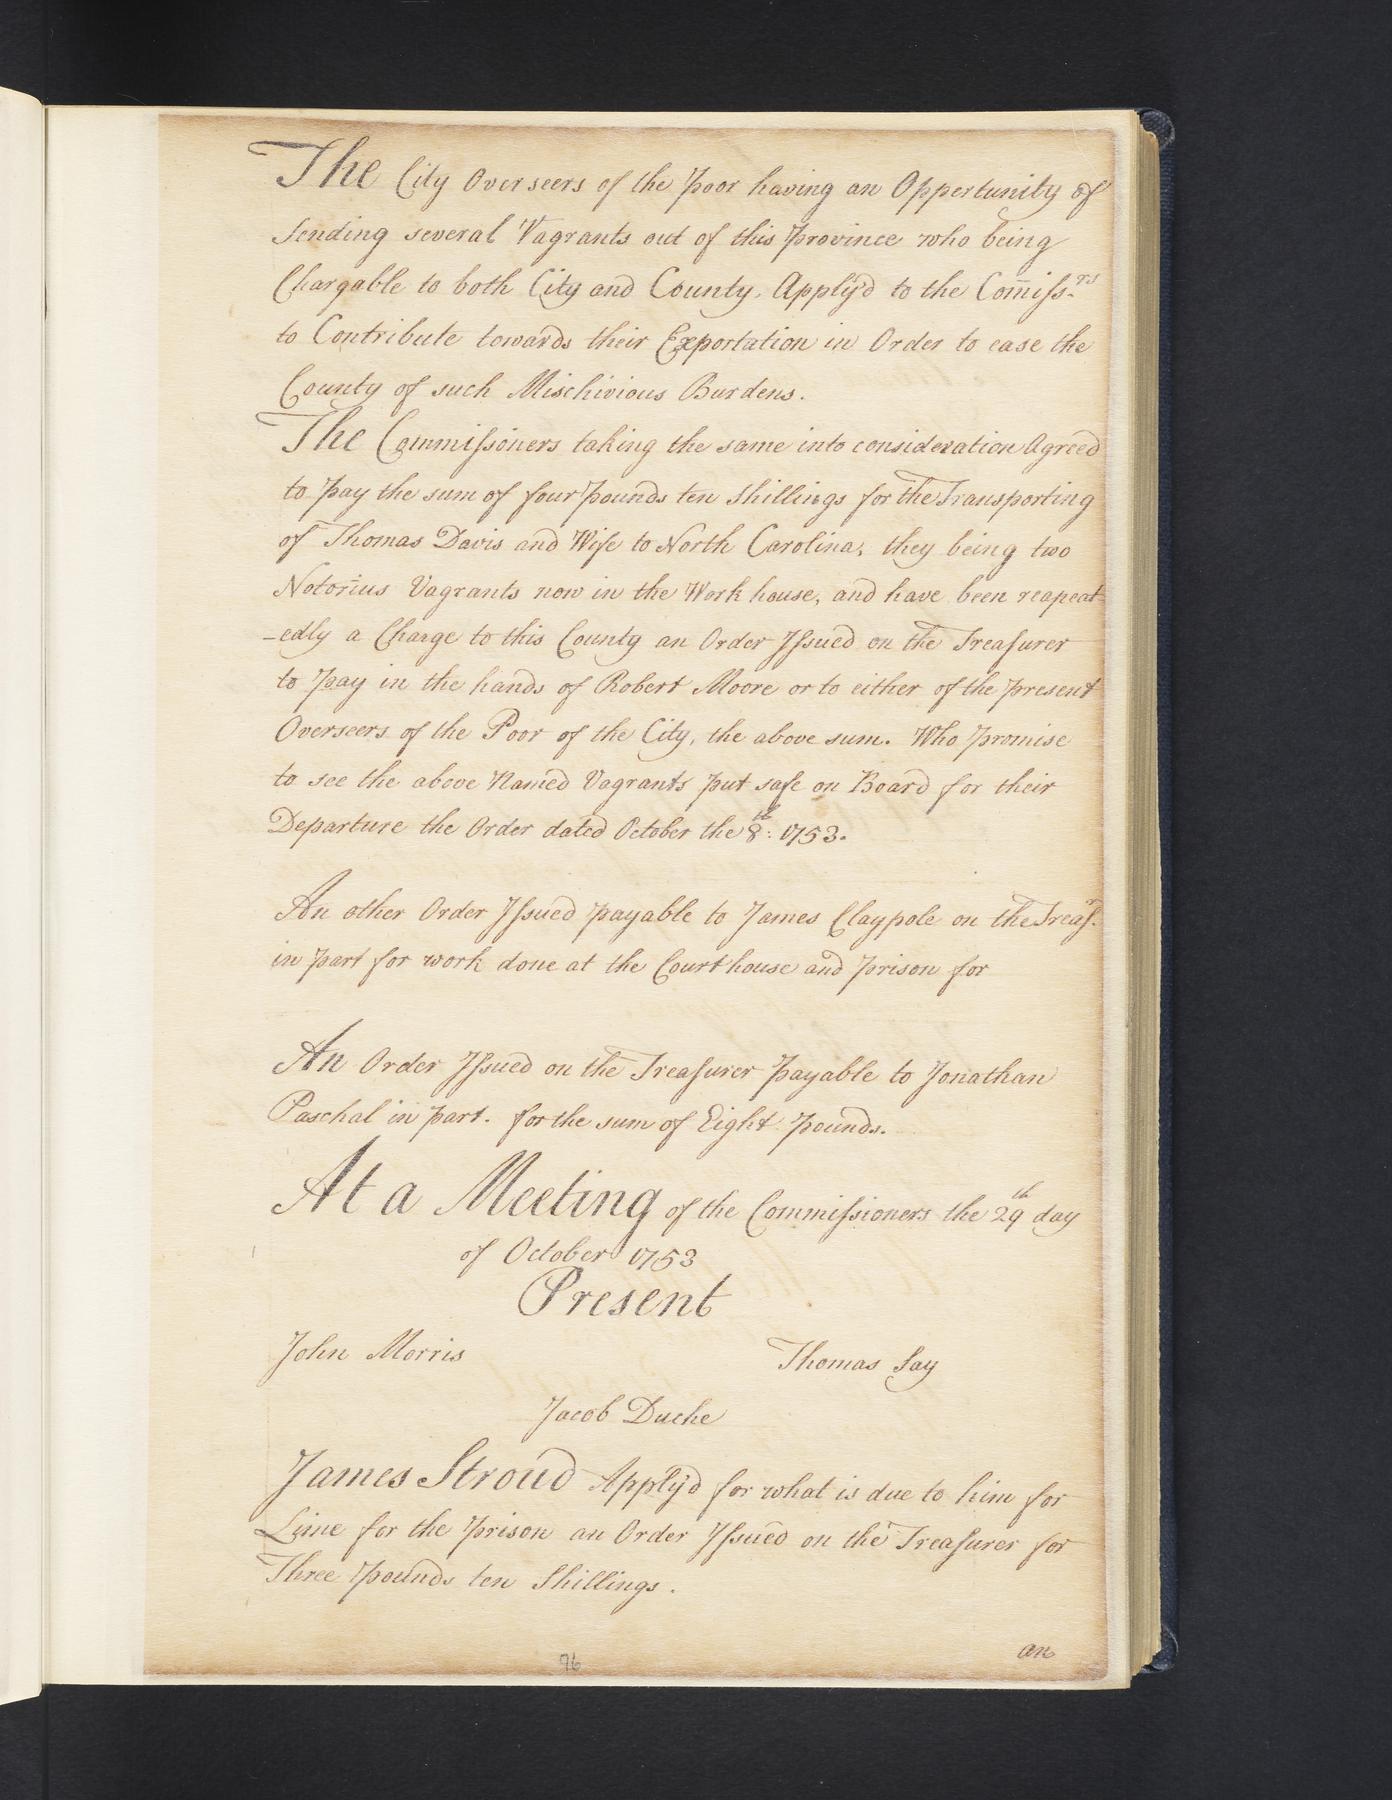 The City Overseers of the Poor having an Oppertunity of
Sending several Vagrants out of this Province who being
Chargable to both City and County. Apply'd to the Com̄iss.rs
to Contribute towards their Exportation in Order to ease the
County of such Mischivious Burdens.
The Commissioners taking the same into consideration Agreed
to pay the sum of four pounds ten Shillings for the Transporting
of Thomas Davis and Wife to North Carolina, they being two
Notorius Vagrants now in the Work house, and have been reapeat-
-edly a Charge to this County an Order Issued on the Treasurer
to pay in the hands of Robert Moore or to either of the present
Overseers of the Poor of the City, the above sum. Who promise
to see the above Named Vagrants put safe on Board for their
Departure the Order dated October the 8th: 1753.
An other Order Issued payable to James Claypole on the Treasr.
in part for work done at the Court house and prison for
An Order Issued on the Treasurer Payable to Jonathan
Paschal in part. for the sum of Eight pounds.
At a Meeting of the Commissioners the 29th day
of October 1753
Present
John Morris Thomas Say
Jacob Duche
James Stroud Apply'd for what is due to him for
Lime for the prison an Order Issued on the Treasurer for
Three pounds ten Shillings.
an
96